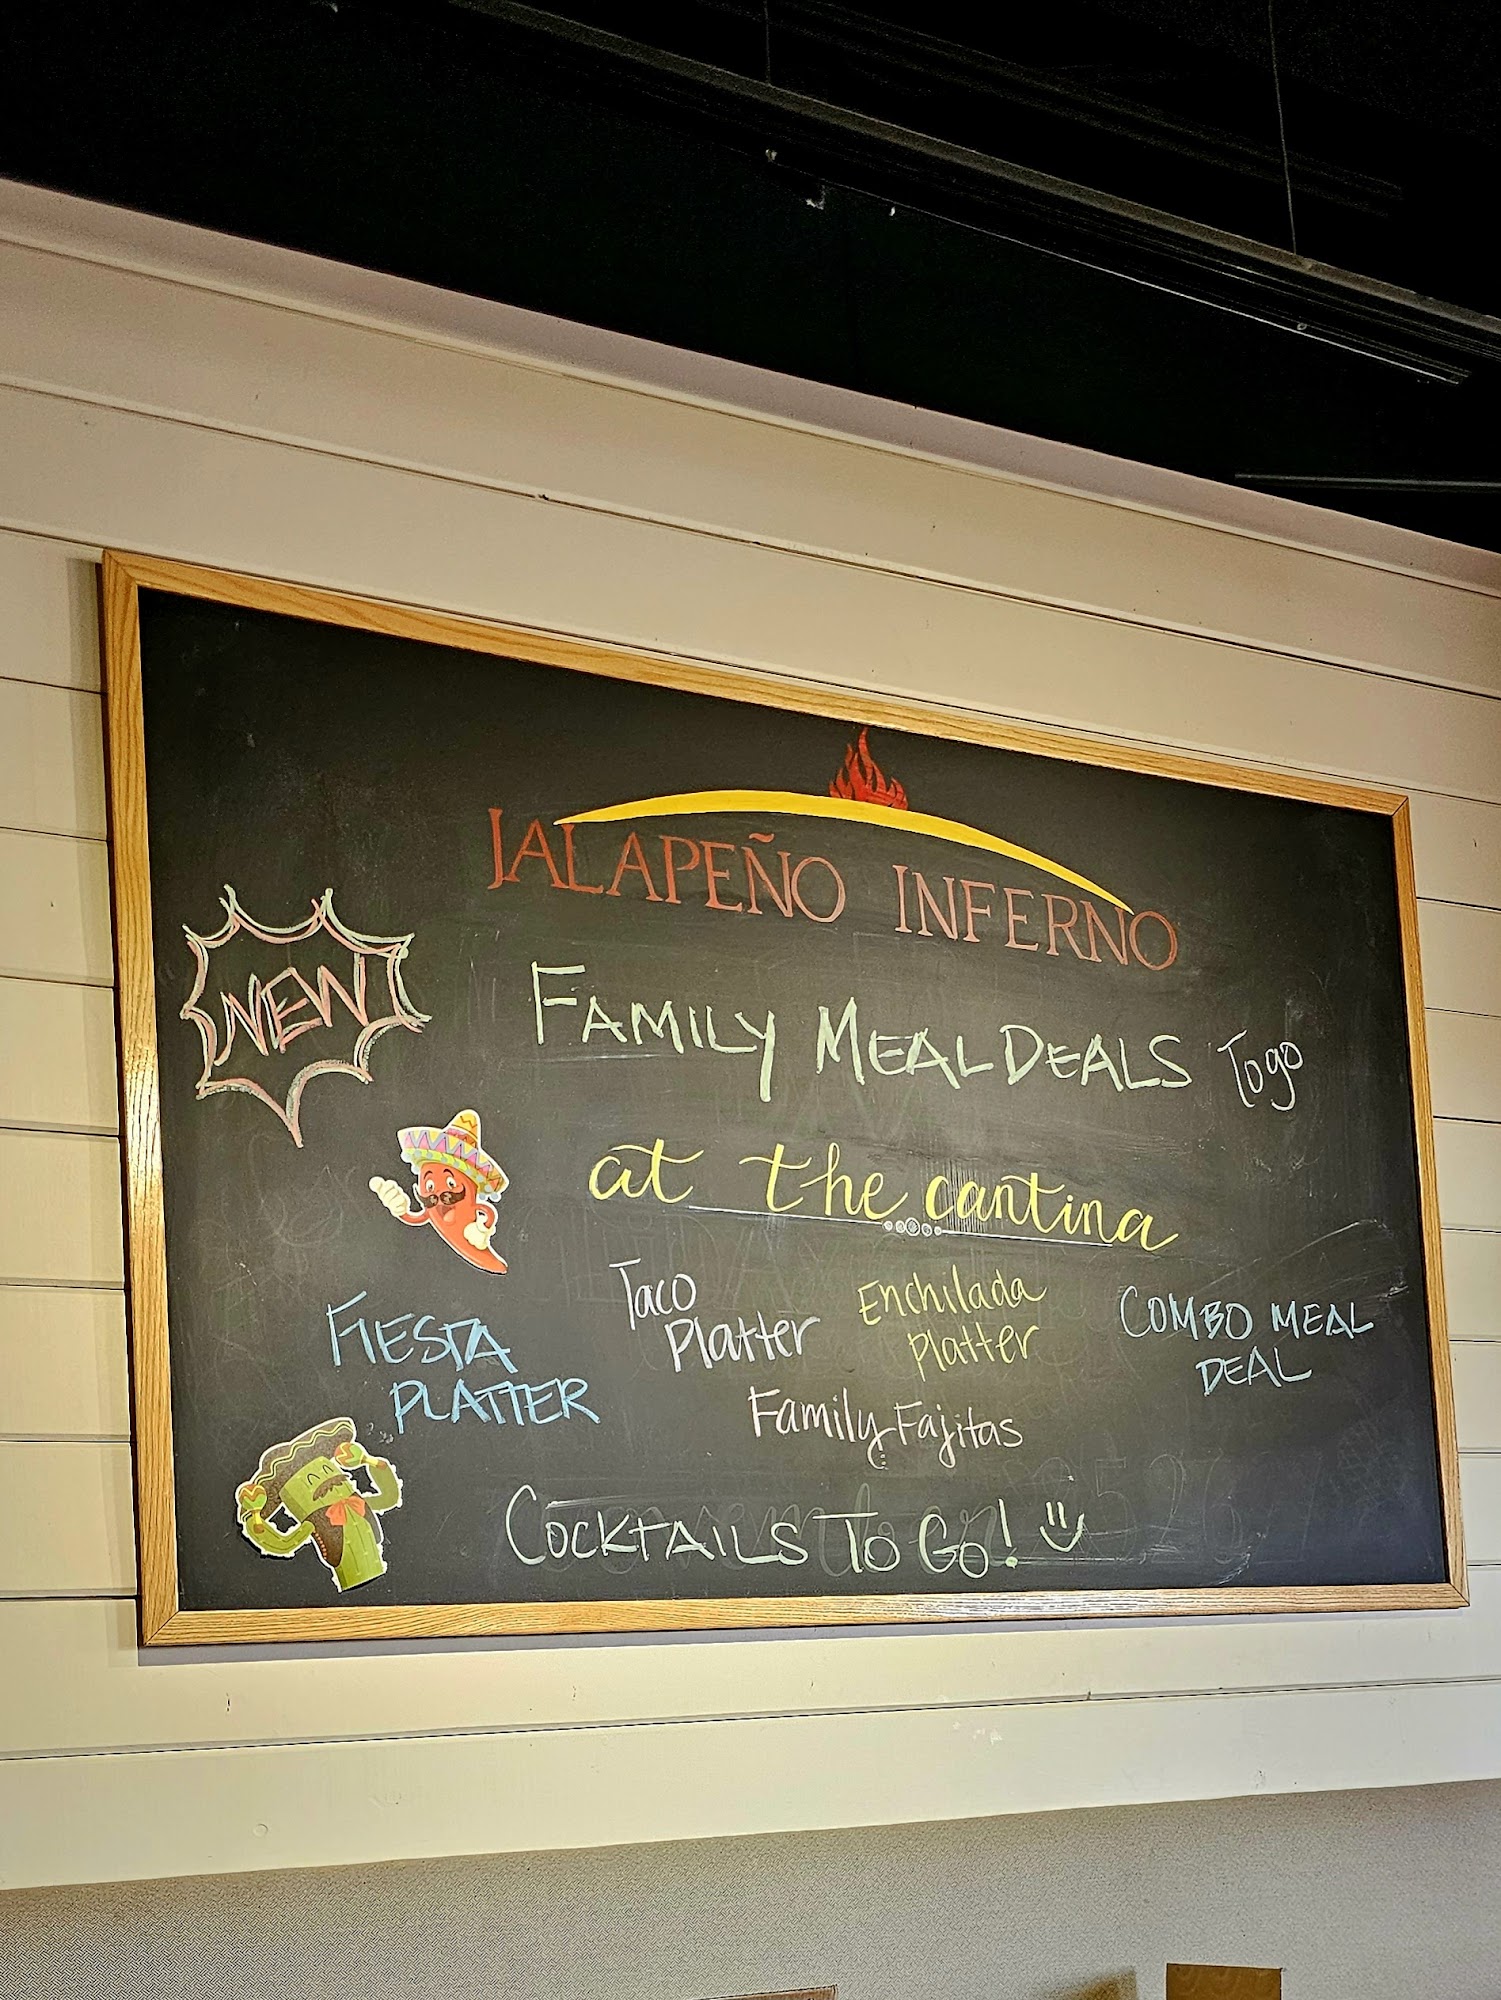 JALAPEÑO INFERNO
NEW
FAMILY MEAL DEALS To go
at the cantina
FIESTA
PLATTER
Taco
Platter
Enchilada
Platter
COMBO MEAL
DEAL
Family Fajitas
COCKTAILS TO GO!